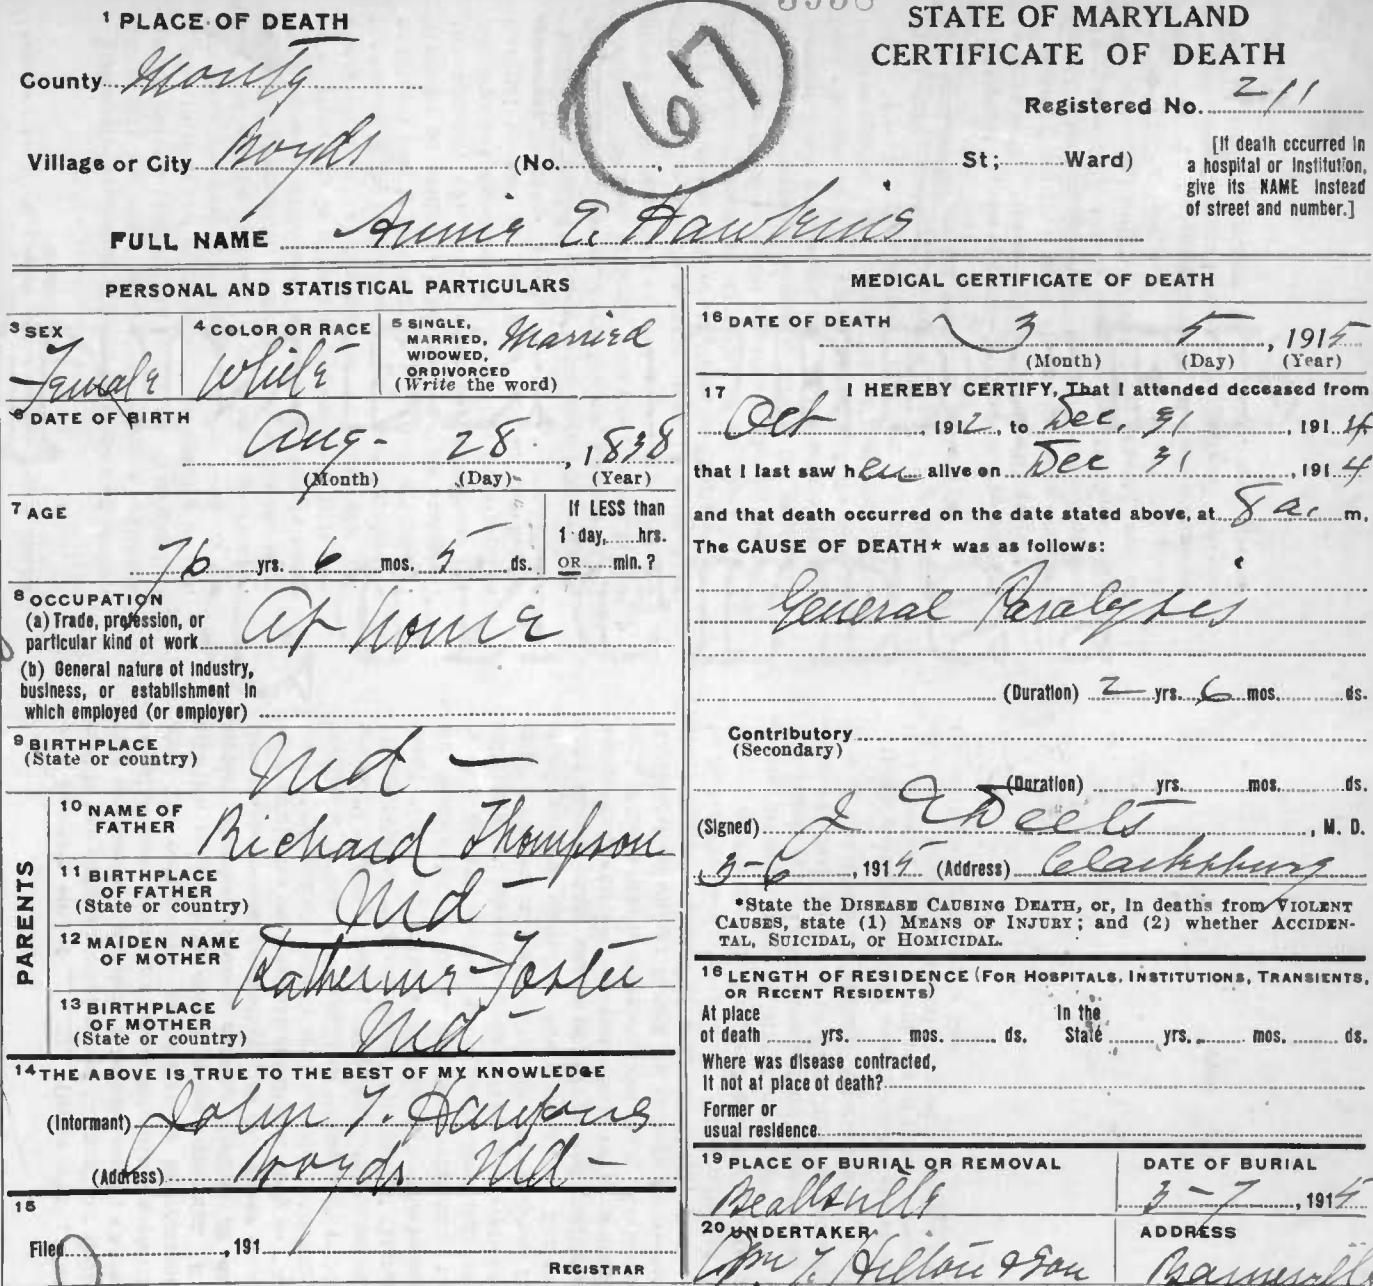 1 PLACE OF DEATH
County Montg
Village or City Boyds (No. , St; Ward)
67
STATE OF MARYLAND
CERTIFICATE OF DEATH
Registered No. 211
[If death occurred in
a hospital or institution,
give its NAME instead
of street and number.]
FULL NAME Annie E. Hawkins
PERSONAL AND STATISTICAL PARTICULARS
3 SEX Female
4 COLOR OR RACE White
5 SINGLE,
MARRIED,
WIDOWED,
OR DIVORCED
(Write the word) Married
6 DATE OF BIRTH
Aug- 28. , 1838
(Month) (Day) (Year)
7 AGE
76 yrs. 6 mos. 5 ds.
If LESS than
1 day, hrs.
OR min. ?
8 OCCUPATION
(a) Trade, profession, or
particular kind of work At home
(b) General nature of Industry,
business, or establishment in
which employed (or employer)
9 BIRTHPLACE
(State or country) Md -
PARENTS
10 NAME OF
FATHER Richard Thompson
11 BIRTHPLACE
OF FATHER
(State or country) Md -
12 MAIDEN NAME
OF MOTHER Katherine Foster
13 BIRTHPLACE
OF MOTHER
(State or country) Md -
14 THE ABOVE IS TRUE TO THE BEST OF MY KNOWLEDGE
(Informant) John T. Hawkins
(Address) Boyds Md -
15
Filed , 191
REGISTRAR
MEDICAL CERTIFICATE OF DEATH
16 DATE OF DEATH 3 5 , 1915
(Month) (Day) (Year)
17 I HEREBY CERTIFY, That I attended deceased from
Oct , 1912, to Dec. 31 , 1914
that I last saw her alive on Dec 31 , 1914
and that death occurred on the date stated above, at 8 a. m.
The CAUSE OF DEATH* was as follows:
General Paralysis
(Duration) 2 yrs. 6 mos. ds.
Contributory
(Secondary)
(Duration) yrs. mos. ds.
(Signed) J Deets , M. D.
3-6 , 1915 (Address) Clarksburg
*State the DISEASE CAUSING DEATH, or, in deaths from VIOLENT
CAUSES, state (1) MEANS OF INJURY; and (2) whether ACCIDEN-
TAL, SUICIDAL, or HOMICIDAL.
18 LENGTH OF RESIDENCE (FOR HOSPITALS, INSTITUTIONS, TRANSIENTS,
OR RECENT RESIDENTS)
At place In the
of death yrs. mos. ds. State yrs. mos. ds.
Where was disease contracted,
If not at place of death?
Former or
usual residence
19 PLACE OF BURIAL OR REMOVAL
Beallsville
DATE OF BURIAL
3-7 , 1915
20 UNDERTAKER
Wm T. Hilton & Son
ADDRESS
Barnesville